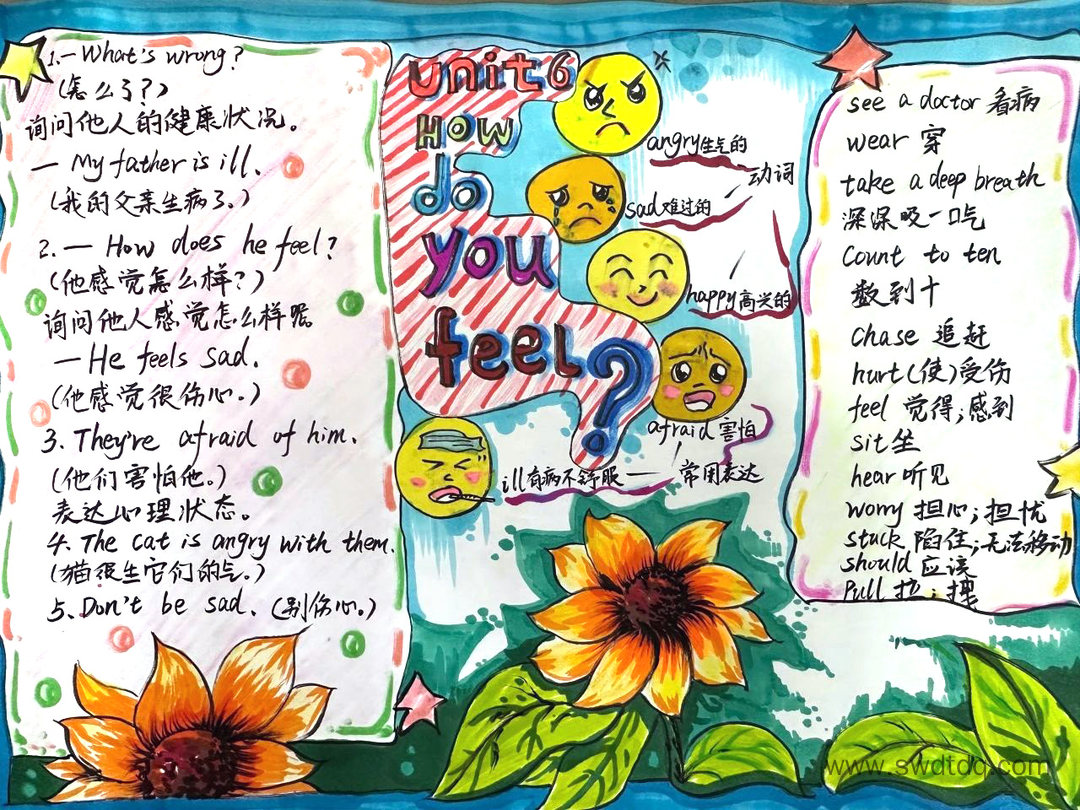 1.—What's wrong?
(怎么了?)
询问他人的健康状况。
— My father is ill.
(我的父亲生病了。)
2. — How does he feel?
(他感觉怎么样?)
询问他人感觉怎么样呢
— He feels sad.
(他感觉很伤心。)
3. They're afraid of him.
(他们害怕他。)
表达心理状态。
4. The cat is angry with them.
(猫很生它们的气。)
5. Don't be sad. (别伤心。)
unit 6
How
do
you
feel?
angry生气的
动词
sad难过的
happy高兴的
afraid害怕
ill有病不舒服
常用表达
see a doctor 看病
wear 穿
take a deep breath
深深吸一口气
Count to ten
数到十
chase 追赶
hurt(使)受伤
feel 觉得;感到
sit坐
hear听见
worry 担心;担忧
stuck 陷住;无法移动
should 应该
Pull 拉;拽
www.swdtdq.com